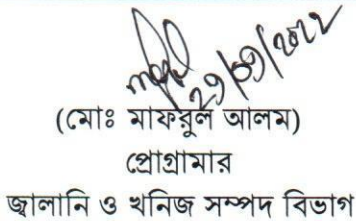 29/09/2022
(মোঃ মাফরুল আলম)
প্রোগ্রামার
জ্বালানি ও খনিজ সম্পদ বিভাগ